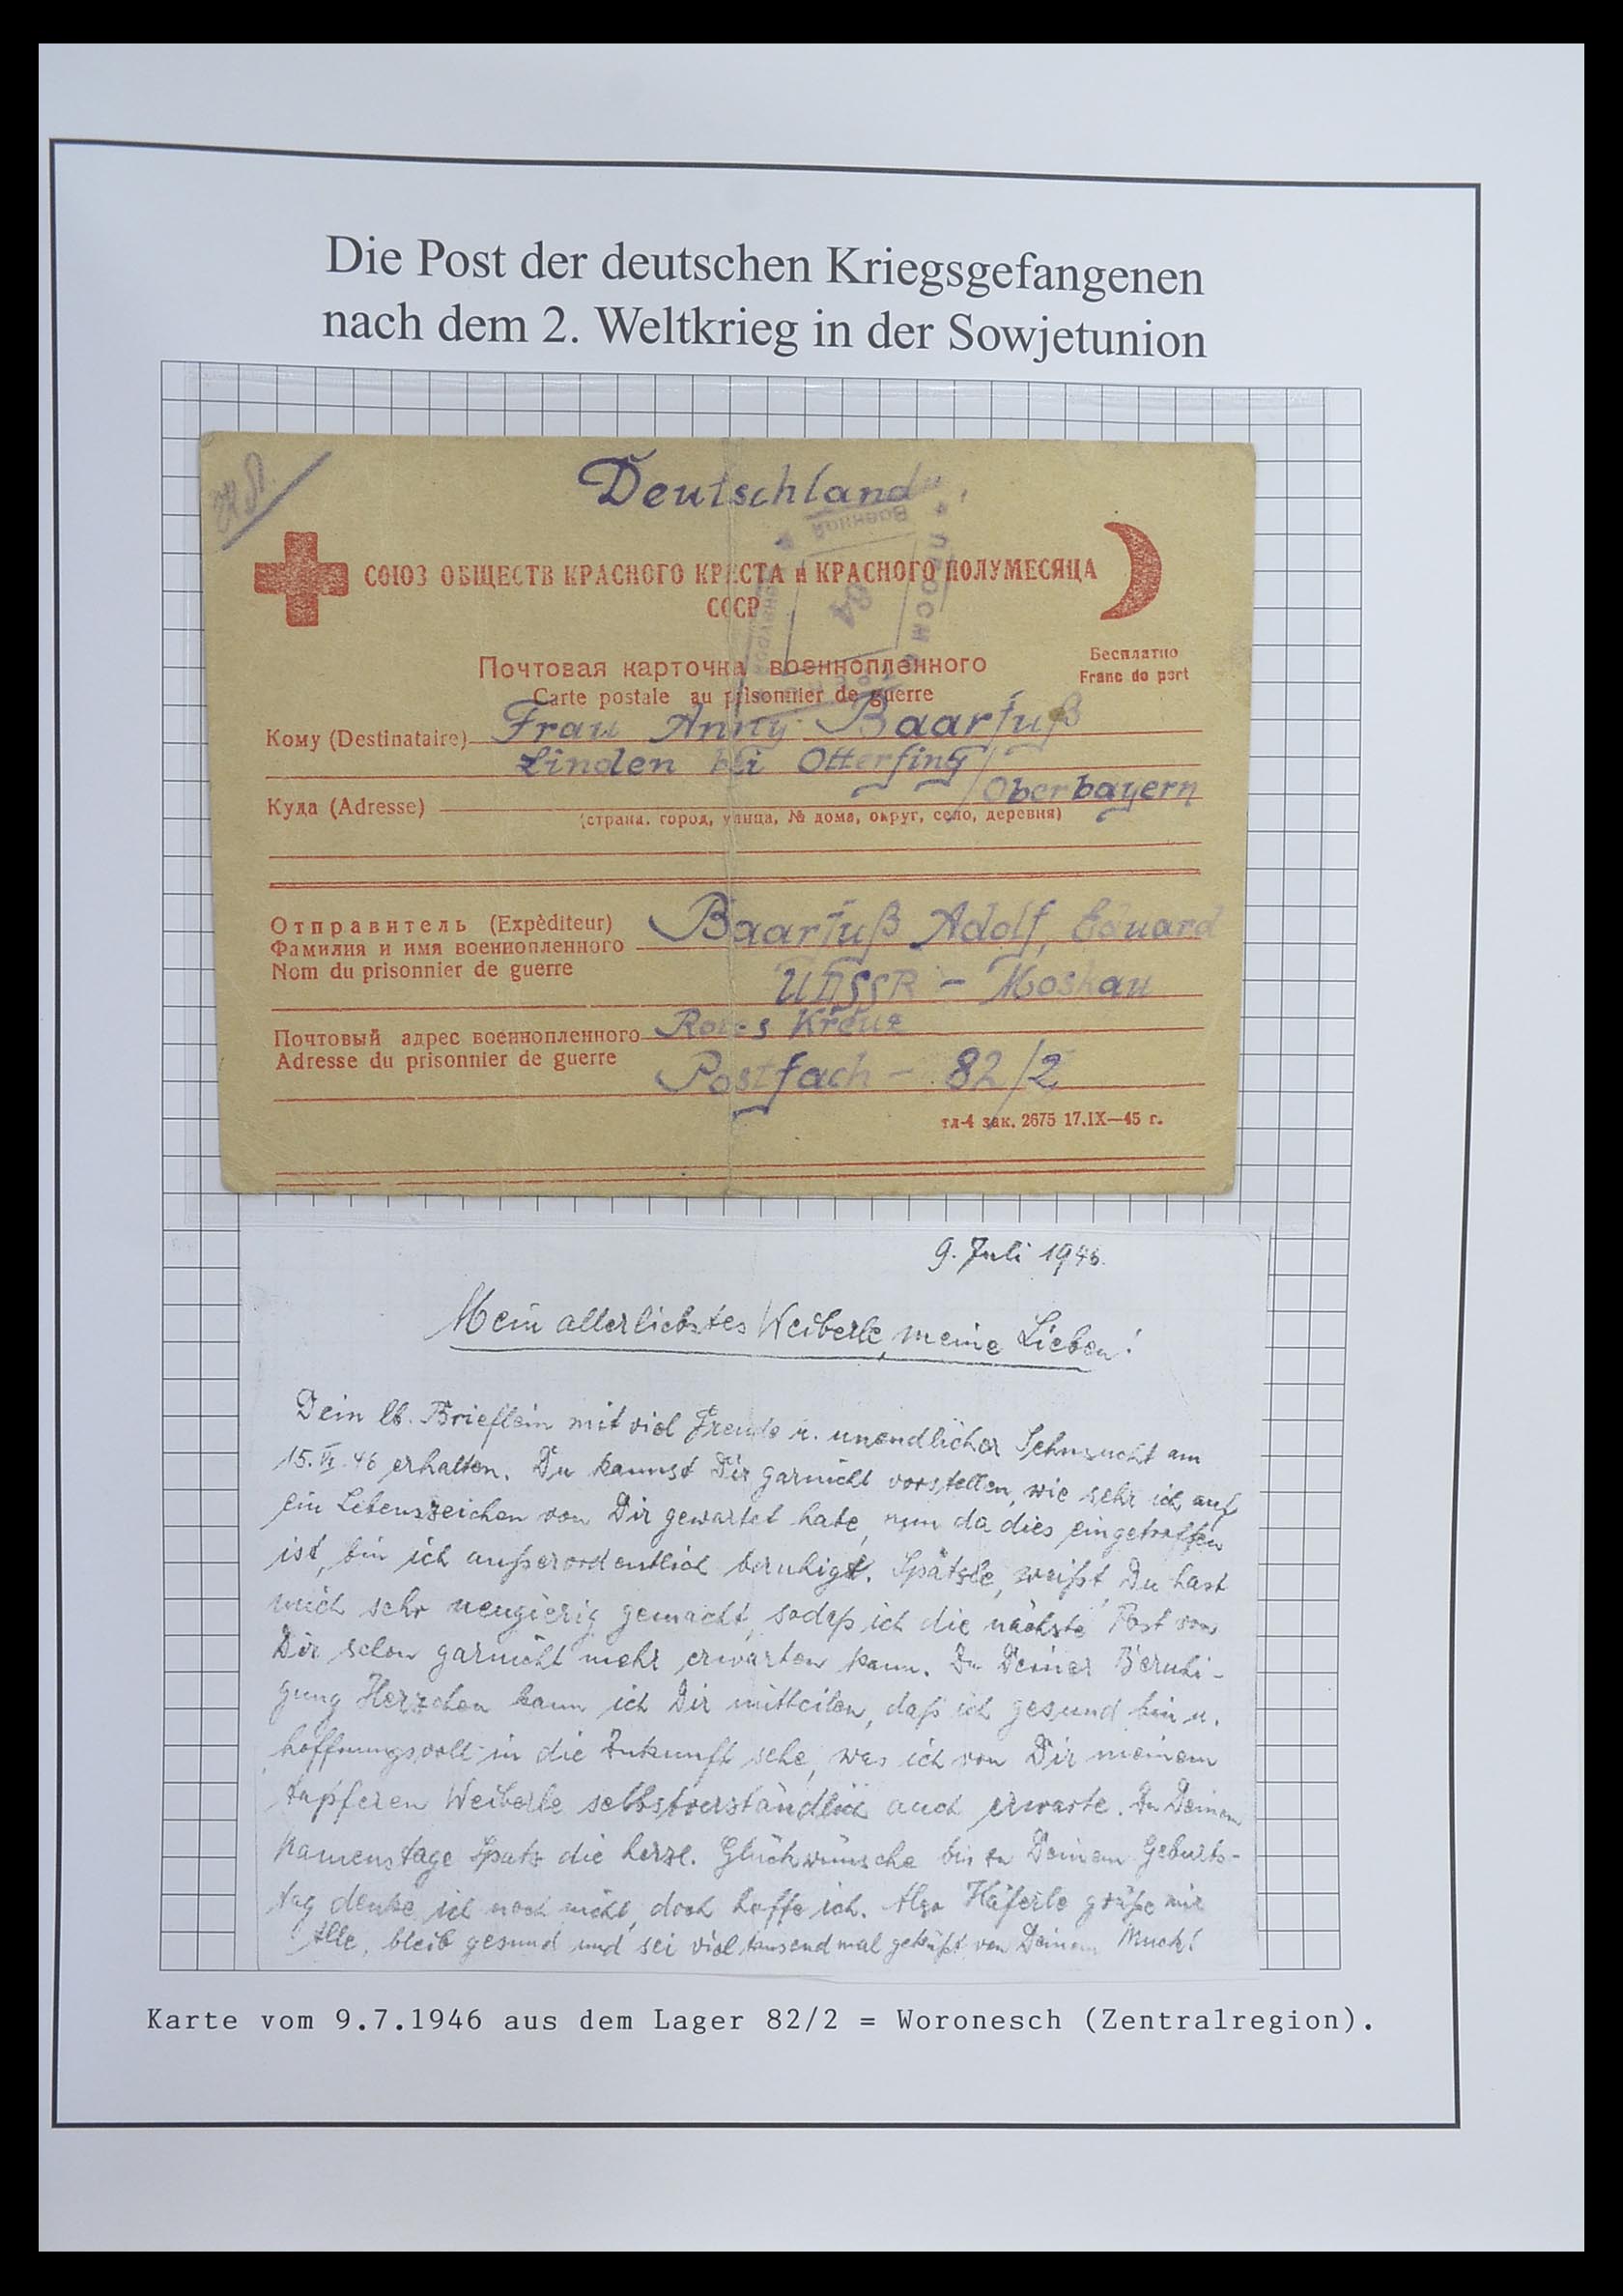 Die Post der deutschen Kriegsgefangenen
nach dem 2. Weltkrieg in der Sowjetunion
Deutschland
СОЮЗ ОБЩЕСТВ КРАСНОГО КРЕСТА и КРАСНОГО ПОЛУМЕСЯЦА
СССР
Военная
Почтовая карточка военнопленного
Carte postale au prisonnier de guerre
Бесплатно
Franc de port
Кому (Destinataire) Frau Anny Baarfuß
Linden bei Otterfing
Oberbayern
Куда (Adresse)
(страна, город, улица, № дома, округ, село, деревня)
Отправитель (Expèditeur) Baarfuß Adolf, Eduard
Фамилия и имя военнопленного
Nom du prisonnier de guerre
UDSSR - Moskau
Почтовый адрес военнопленного Rotes Kreuz
Adresse du prisonnier de guerre
Postfach - 82/2
тл-4 зак. 2675 17.IX—45 г.
9. Juli 1946.
Mein allerliebstes Weiberle, meine Lieben!
Dein lb. Brieflein mit viel Freude u. unendlicher Sehnsucht am
15. VI. 46 erhalten. Du kannst Dir garnicht vorstellen, wie sehr ich auf
ein Lebenszeichen von Dir gewartet habe, nun da dies eingetroffen
ist, bin ich außerordentlich beruhigt. Spätzle, weißt, Du hast
mich sehr neugierig gemacht, sodaß ich die nächste Post von
Dir schon garnicht mehr erwarten kann. Zu Deiner Beruhi-
gung Herzchen kann ich Dir mitteilen, daß ich gesund bin u.
hoffnungsvoll in die Zukunft sehe, was ich von Dir meinem
tapferen Weiberle selbstverständlich auch erwarte. Zu Deinem
Namenstage Spatz die herzl. Glückwünsche bis zu Deinem Geburts-
tag denke ich noch nicht, doch hoffe ich. Also Häferle grüße mir
Alle, bleib gesund und sei viel tausendmal geküßt von Deinem Muckl
Karte vom 9.7.1946 aus dem Lager 82/2 = Woronesch (Zentralregion).